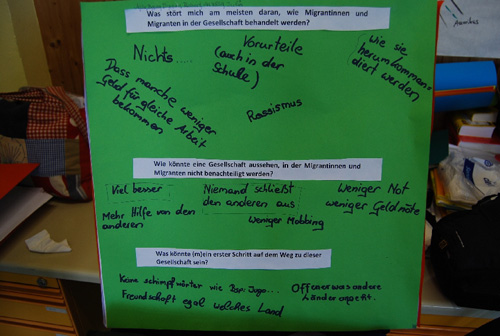 Was stört mich am meisten daran, wie Migrantinnen und
Migranten in der Gesellschaft behandelt werden?
Nichts.....
Vorurteile
(auch in der
Schule)
wie sie
herumkomman-
diert werden
Dass manche weniger
Geld für gleiche Arbeit
bekommen
Rassismus
Wie könnte eine Gesellschaft aussehen, in der Migrantinnen und
Migranten nicht benachteiligt werden?
Viel besser
Niemand schließt
den anderen aus
Weniger Not
weniger Geldnöte
Mehr Hilfe von den
anderen
weniger Mobbing
Was könnte (m)ein erster Schritt auf dem Weg zu dieser
Gesellschaft sein?
Keine schimpfwörter wie Jugo...
Freundschaft egal welches Land
Offener was andere
Länder